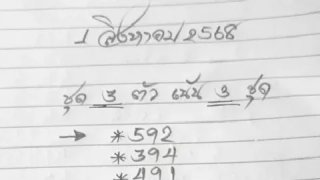 1 สิงหาคม 2568
ชุด 3 ตัว เน้น 3 ชุด
→ *592
*394
*491